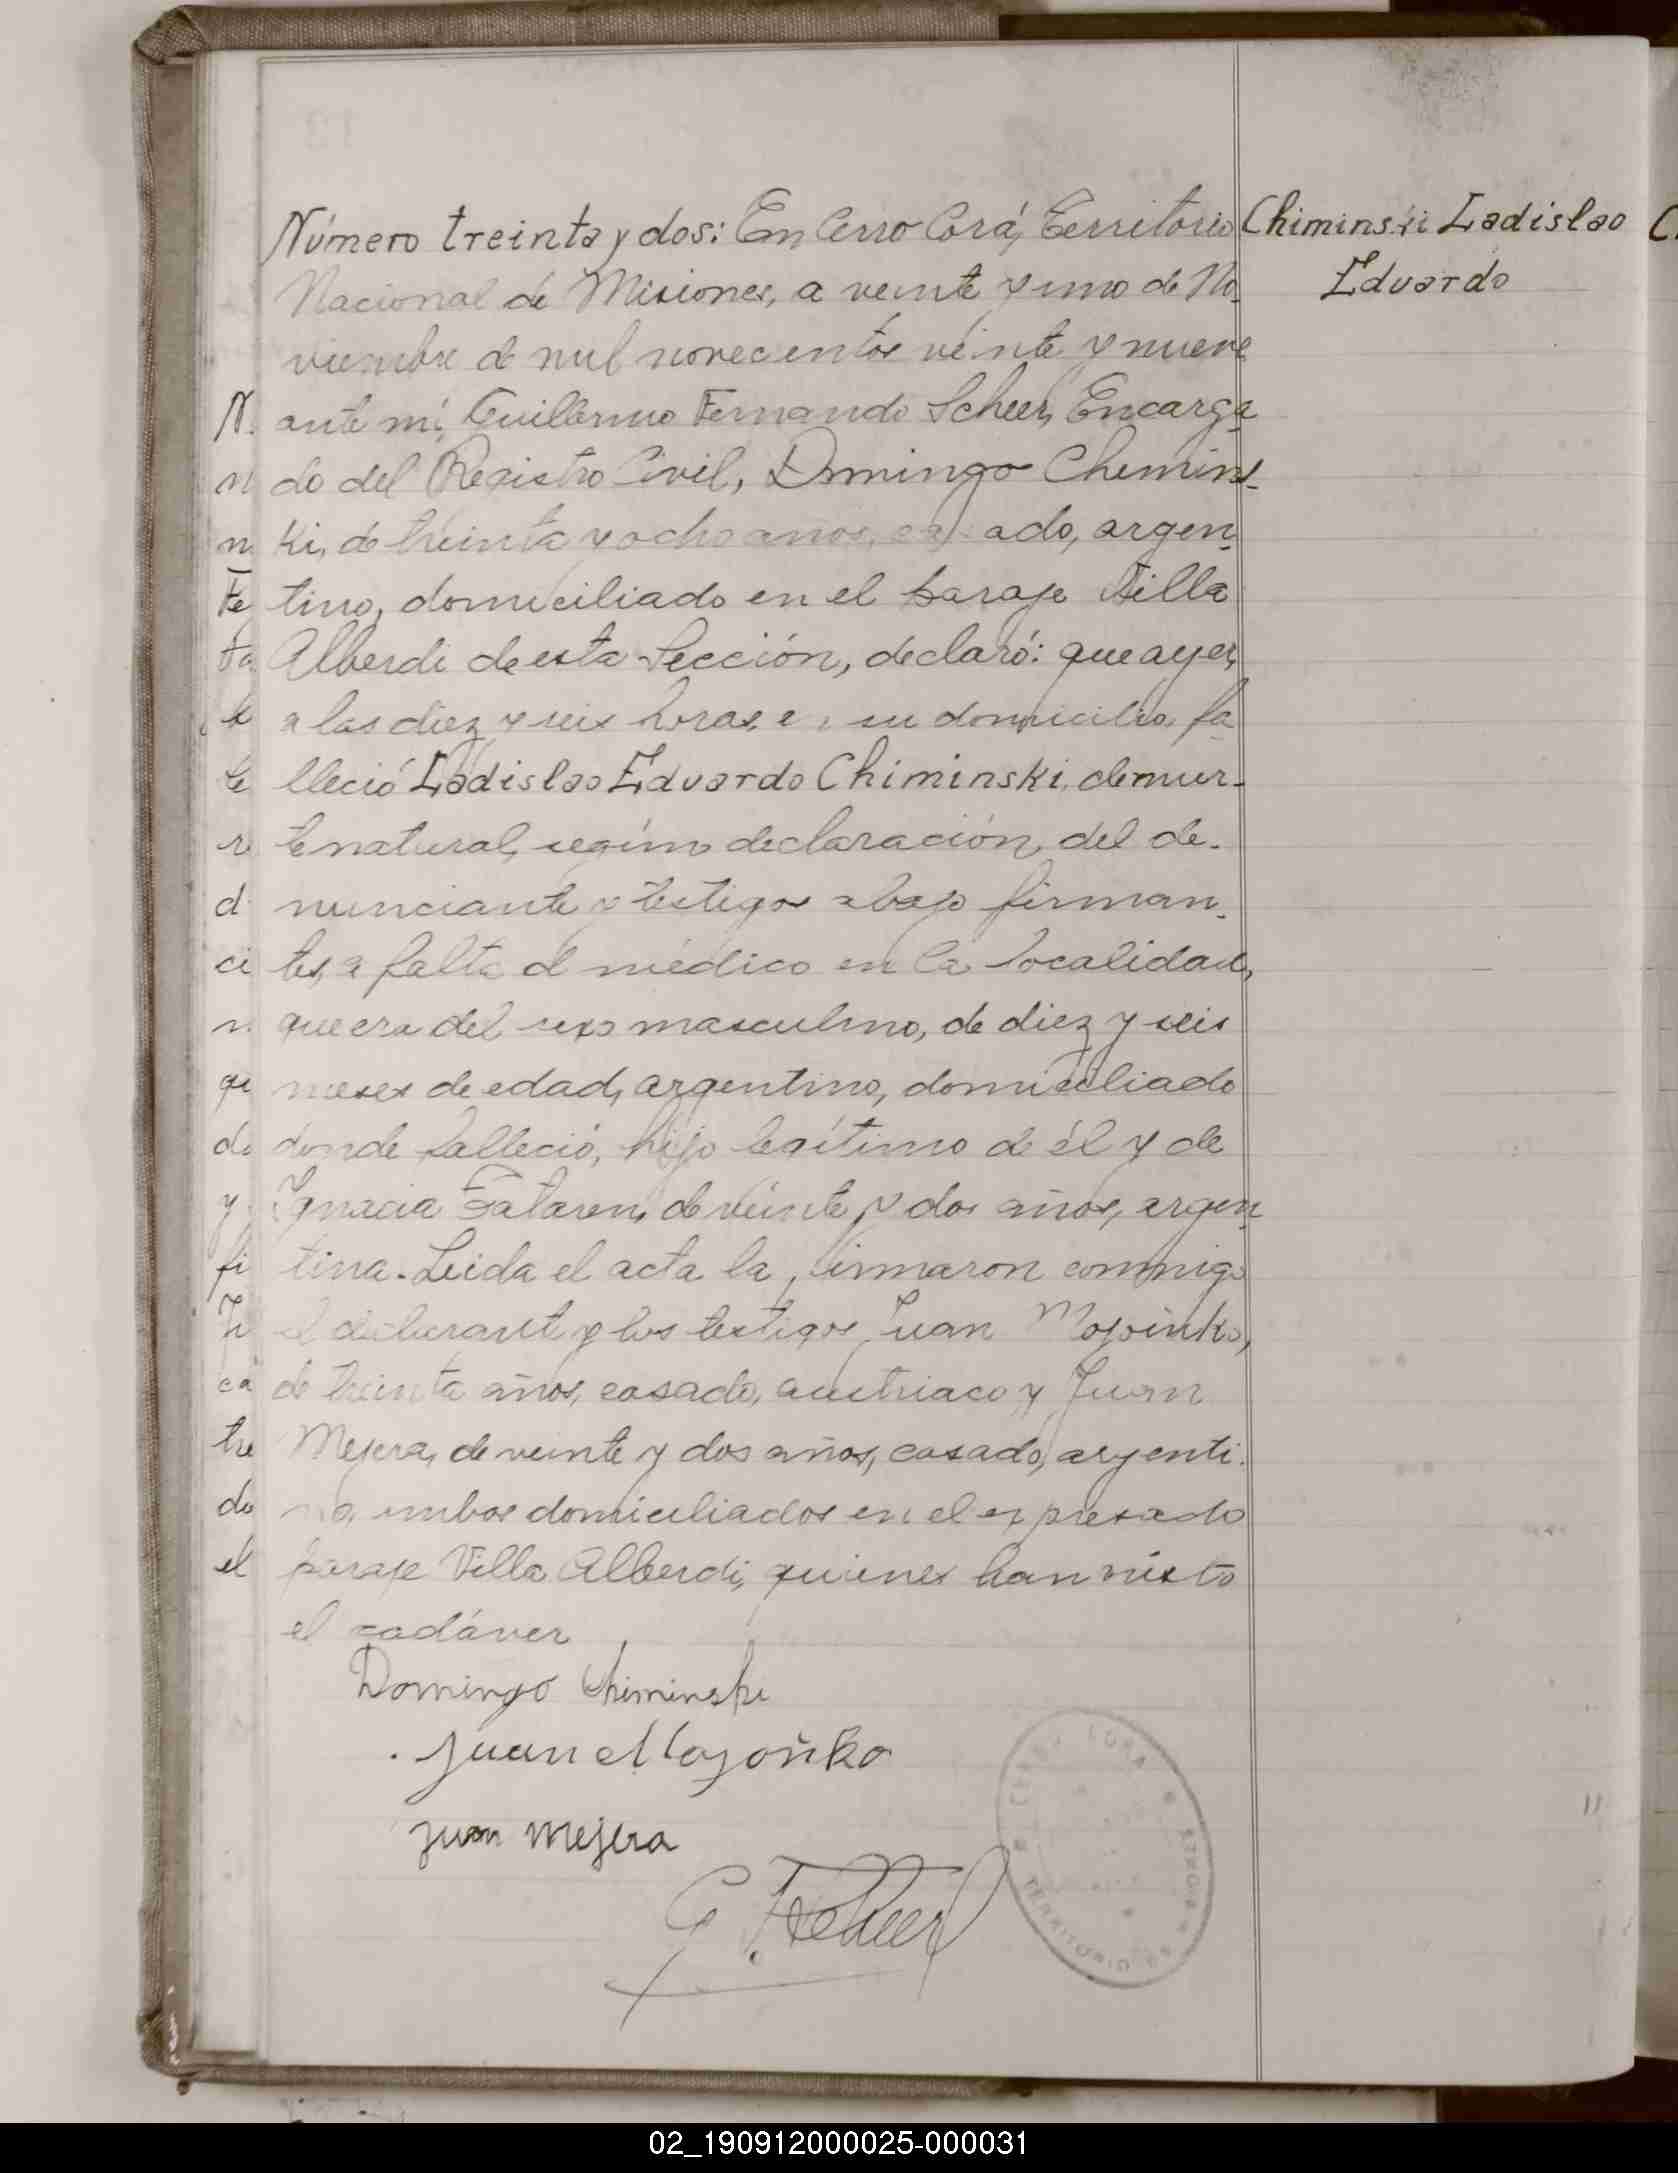 Número treinta y dos: En Cerro Corá, Territorio
Nacional de Misiones, a veinte y uno de No-
viembre de mil novecientos veinte y nueve
ante mí, Guillermo Fernando Scheer, Encarga-
do del Registro Civil, Domingo Chemins-
ki, de treinta y ocho anos, casado, argen-
tino, domiciliado en el paraje Villa
Alberdi de esta Sección, declaró: que ayer,
a las diez y seis horas, en su domicilio, fa-
lleció Ladislao Eduardo Chiminski, de muer-
te natural, según declaración del de-
nunciante y testigos abajo firman-
tes, a falta d médico en la localidad,
que era del sexo masculino, de diez y seis
meses de edad, argentino, domiciliado
donde falleció, hijo legítimo de él y de
Ignacia de veinte y dos años, argen-
tina. Leida el acta la firmaron conmigo
el declarante y los testigos Juan Mozoinko,
de treinta años, casado, austriaco y Juan
Mejera, de veinte y dos años, casado, argenti-
no, ambos domiciliados en el expresado
paraje Villa Alberdi, quienes han visto
el cadáver
Domingo Chiminski
Juan Mozoñko
Juan Mejera
G. F. Scheer
Chiminski Ladislao
Eduardo
N.
n
n
Fe
ta
te
re
d
ci
n
qu
do
y
fi
ca
tre
do
el
CERRO CORA
TERRITORIO
02_190912000025-000031